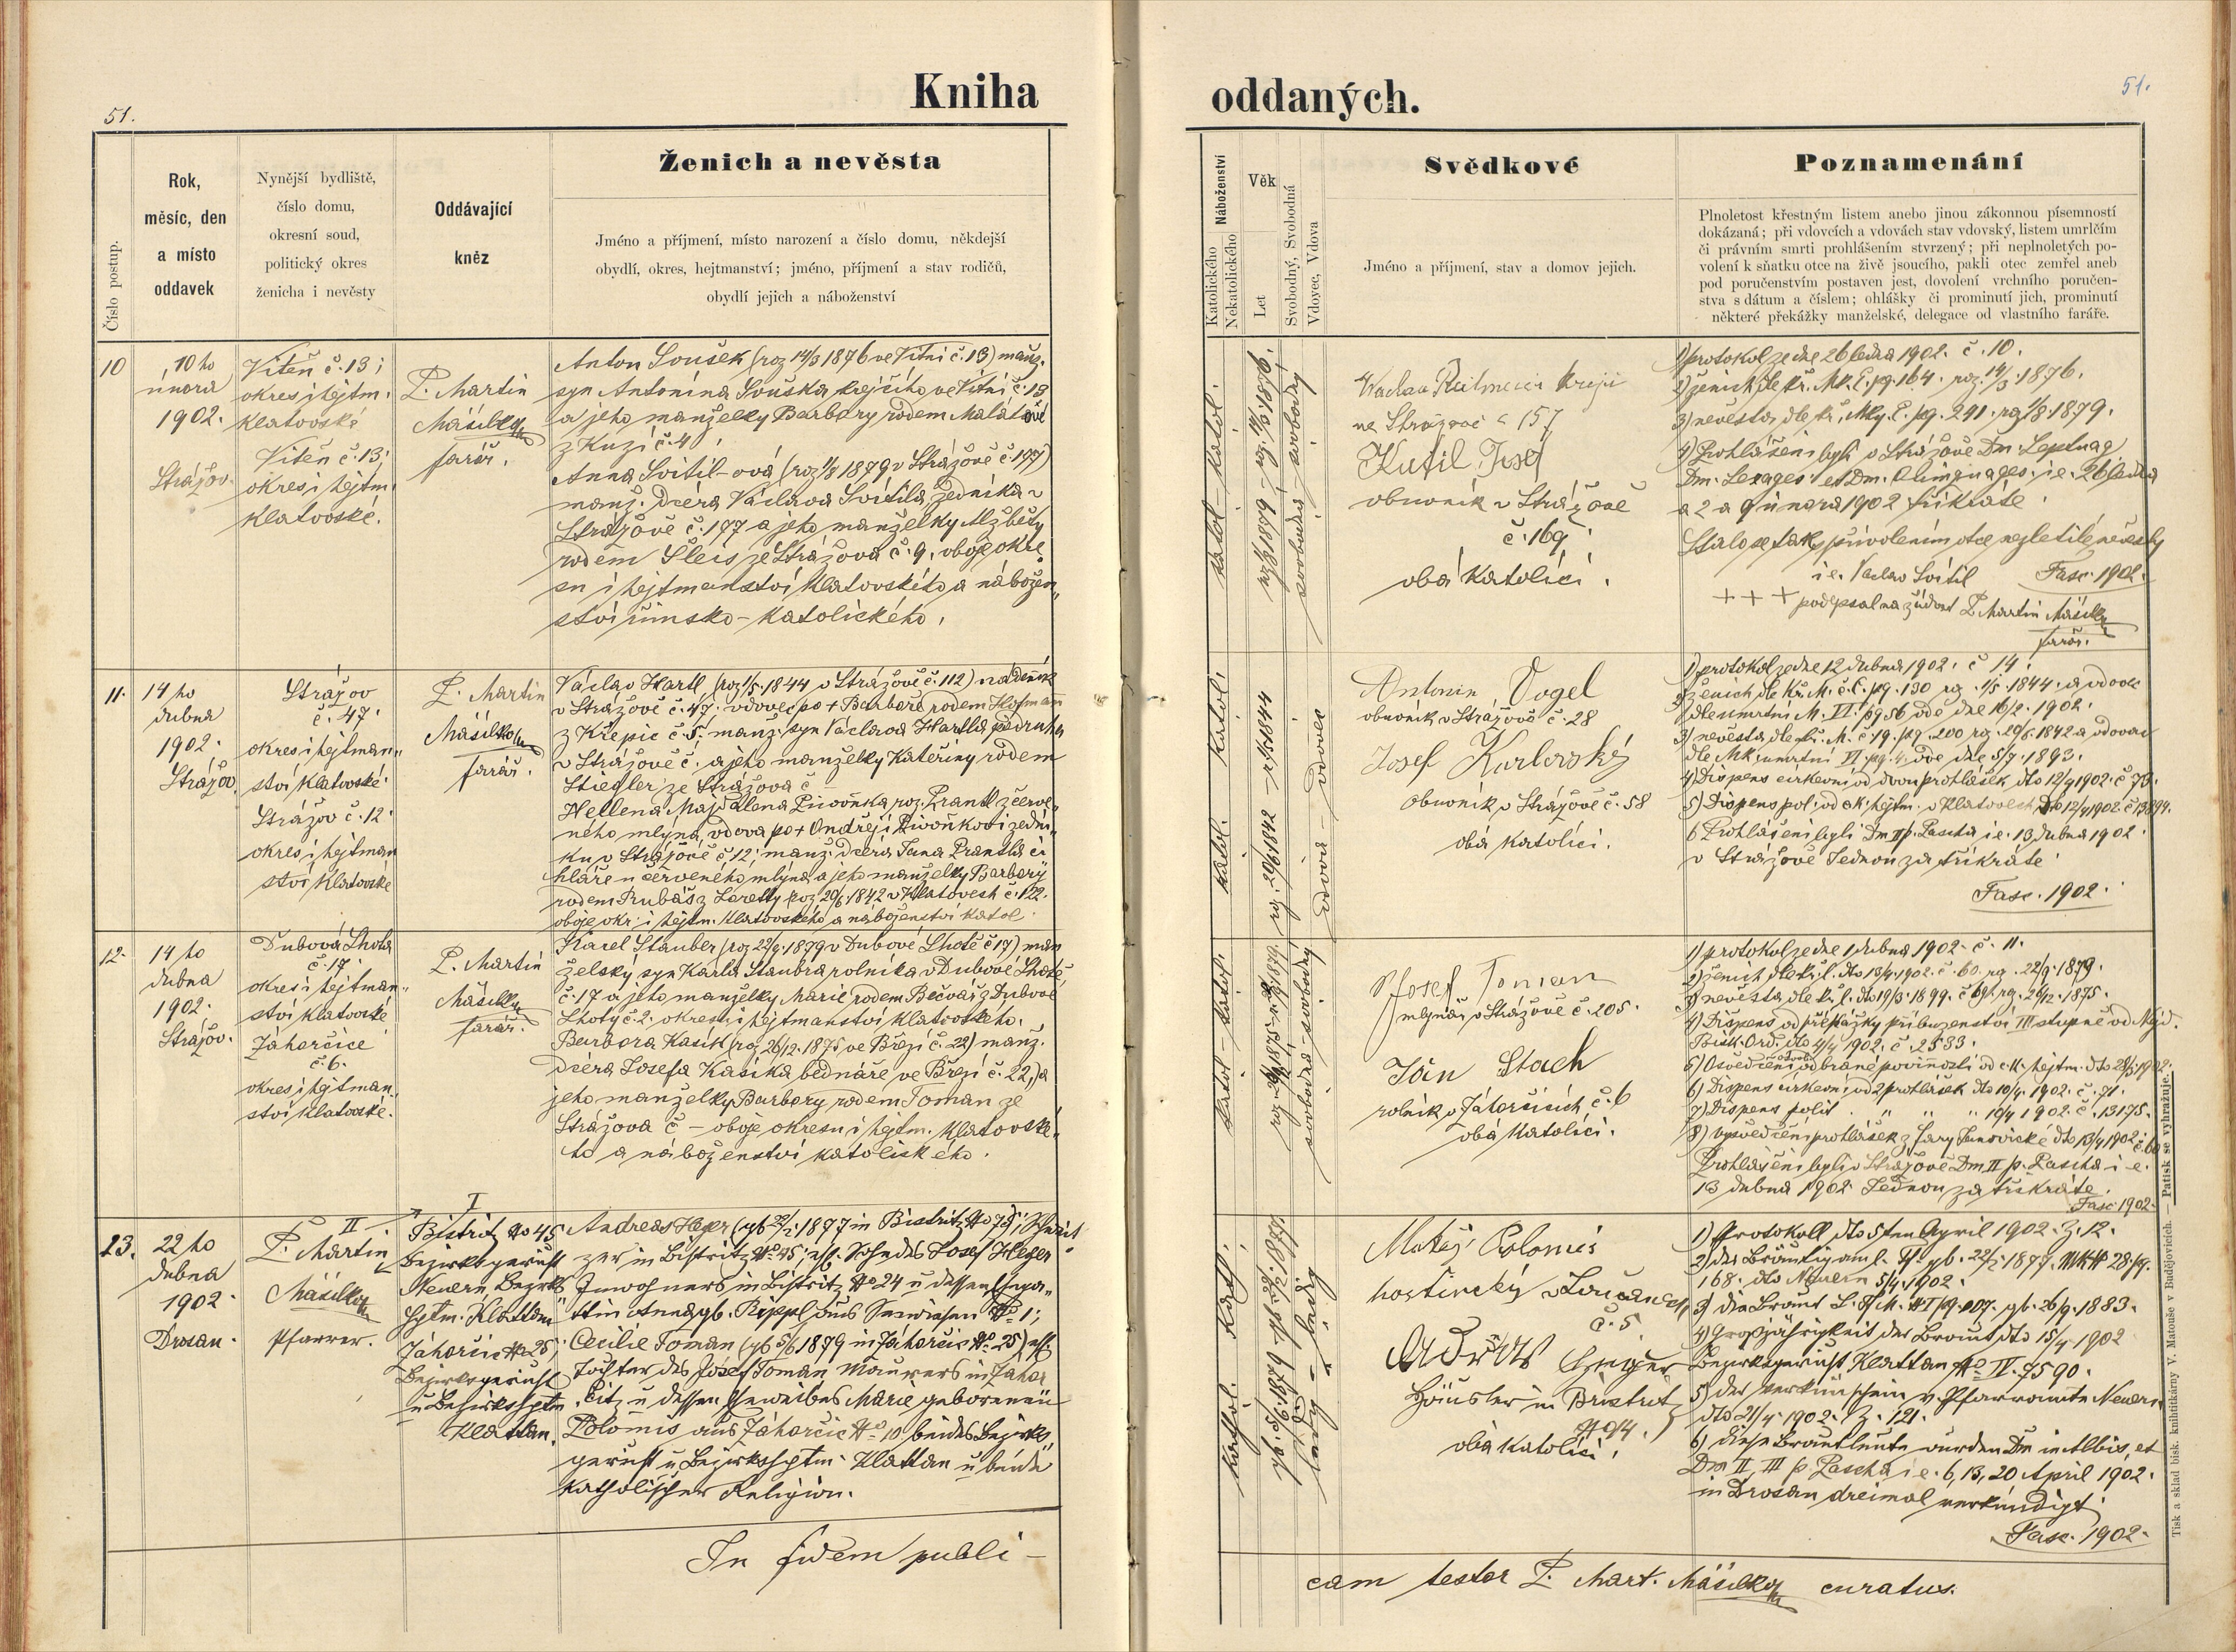 Kniha
51.
Číslo postup.
Rok,
měsíc, den
a místo
oddavek
Nynější bydliště,
číslo domu,
okresní soud,
politický okres
ženicha i nevěsty
Oddávající
kněz
Ženich a nevěsta
Jméno a příjmení, místo narození a číslo domu, někdejší
obydlí, okres, hejtmanství; jméno, příjmení a stav rodičů,
obydlí jejich a náboženství
10
10ho
února
1902.
Strážov.
Viteň č. 13;
okres i hejtm.
klatovské
Viteň č. 13;
okres i hejtm.
Klatovské.
P. Martin
Mäsilko
farář.
Anton Soušek (roz 14/3 1876 ve Vítni č. 13) manž.
syn Antonína Souška krejčího ve Vítni č. 13
a jeho manželky Barbory rodem Malátové
z Kuzí č. 4
Anna Svitil-ová (roz 1/8 1879 v Strážově č. 177)
manž. dcera Václava Svitila zedníka v
Strážově č. 177 a jeho manželky Alžběty
rodem Šleis ze Strážova č. 9. oboje okre
su i hejtmanství Klatovského a nábožen„
ství římsko-katolického.
11.
14 ho
dubna
1902.
Strážov.
Strážov
č. 47.
okres i hejtman„
ství Klatovské.
Strážov č. 12.
okres i hejtman
ství Klatovské
P. Martin
Mäsilko
farář.
Václav Hartl, (roz 1/5. 1844 v Strážově č. 112) nádeník
v Strážově č. 47. vdovec po + Barboře rodem Hofmann
z Křepic č. 5. manž. syn Václava Hartla podruha
v Strážově č. a jeho manželky Kateřiny rodem
Stiegler ze Strážova č –
Hellena Majdalena Pivoňka roz. Prantl z červe-
ného mlýna, vdova po + Ondřeji Pivoňkovi zední-
ku v Strážově č 12; manž. dcera Jana Prantla či
hláře u červeného mlýna a jeho manželky Barbory
rodem Rubáš z Loretty roz 20/6. 1842 v Klatovech č. 122.
oboje okr. i hejtm. Klatovského a náboženství katol.
12.
14 ho
dubna
1902.
Strážov.
Dubová Lhota
č. 17.
okres i hejtman„
ství Klatovské
Záhorčice
č 6.
okres i hejtman„
ství Klatovské.
P. Martin
Mäsilko
farář.
Karel Stauber (roz 22/9. 1879 v Dubové Lhotě č 17) man
želský syn Karla Staubra rolníka v Dubové Lhotě
č. 17 a jeho manželky Marie rodem Bečvář z Dubové
Lhoty č. 2. okresu i hejtmanství Klatovského.
Barbora Kasík (roz 26/12. 1875 ve Březí č. 22) manž.
dcera Josefa Kasíka bednáře ve Březí č. 22, a
jeho manželky Barbory rodem Toman ze
Strážova č – oboje okresu i hejtm. Klatovské„
ho a náboženství katolického.
13.
22 ho
dubna
1902.
Drosau.
II
P. Martin
Mäsilko
Pfarrer.
I
Bistritz No 45
Bezirksgericht
Neuern, Bezirks
hptm. Klattau
Záhorčic No 25;
Bezirksgericht
u Bezirkshptm
Klattau.
Andreas Heger (gb 22/1 1877 in Bistritz No 73;
zer in Bistritz No 45; ehl. Sohn des Josef Heger
Inwohners in Bistritz No 24 u dessen Ehega-
ttin Anna gb. Rippl aus No 1;
Cecilie Toman (gb 5/6 1879 in Záhorčic No 25) ehl.
Tochter des Josef Toman Maurers in Záhor
čitz u dessen Eheweibes Marie geborenen
Polomis aus Záhorčic No 10 beides Bezirks
gericht u Bezirkshptm. Klattau u beide
katholischer Religion.
In fidem publi-
oddaných.
51.
Náboženství
Katolického
Nekatolického
Věk
Let
Svobodný, Svobodná
Vdovec, Vdova
Svědkové
Jméno a příjmení, stav a domov jejich.
Poznamenání
Plnoletost křestným listem anebo jinou zákonnou písemností
dokázaná; při vdovcích a vdovách stav vdovský, listem umrlčím
či právním smrti prohlášením stvrzený; při neplnoletých po-
volení k sňatku otce na živě jsoucího, pakli otec zemřel aneb
pod poručenstvím postaven jest, dovolení vrchního poručen-
stva s dátum a číslem; ohlášky či prominutí jich, prominutí
některé překážky manželské, delegace od vlastního faráře.
katol – katol.
roz 1/8 1879; roz. 14/3. 1876.
svobodná – svobodný
ve Strážově č 157
Kutil Josef
obuvník v Strážově
č. 169
obá katolíci.
1) protokol ze dne 26 ledna 1902. č. 10.
2) ženich dle kř. Mk. E. pg. 164. roz. 14/3. 1876.
3) nevěsta, dle kř. Mky. E. pg. 241. roz 1/8. 1879.
4) Prohlášeni byli v Strážově Dm. Septuag
Dm. Sexages. et Dm. Quinquages. i. e. 26 ledna
a 2 a 9 února 1902 třikráte.
Stalo se tak, přivolením otce nezletilé nevěsty
i. e. Václav Svitil Fasc. 1902.
+ + + podepsal na žádost P. Martin Mäsilko
farář.
katol. katol.
roz. 20/6 1842 – 1/5 1844
vdova – vdovec
Antonín Vogel
obuvník v Strážově č. 28
Josef Karlovský
Obuvník v Strážově č. 58
obá katolíci.
1) protokol ze dne 12 dubna 1902. č 14.
2) ženich dle Kř. M. č. C. pg. 130 rz. 1/5. 1844. a vdovec
dle úmrtní M. VI. pg 56 dne 16/2. 1902.
3) nevěsta dle kř. M. č. 19. pg. 200 roz. 20/6. 1842 a vdova
dle Mk. úmrtní VI. pg. 4. dne 5/7. 1893.
4) Dispens církevní od dvou prohlášek dto 12/4 1902. č 73.
5) Dispens pol: od ok. hejtm. v Klatovech dto 12/4 1902. č 13894.
6 Prohlášeni byli Dm II p. Pascha i. e. 13 dubna 1902.
v Strážově Jednou za třikráte.
Fasc. 1902.
katol – katol.
svobodná – svobodný
Josef Toman
mlynář v Strážově č. 205.
Ján Stach
rolník v Záhorčicích č. 6
obá katolíci.
1) protokol ze dne 1 dubna 1902. č. 11.
2) ženich dle kř. l. dto 13/4. 1902. č. 60. rz. 22/9. 1879.
3) nevěsta dle kř. l. dto 19/3. 1899. č 69. rz. 26/12. 1875.
4) Dispens od překážky příbuzenství III stupně od Nejd.
Bisk. Ord. dto 4/4 1902. č. 2583.
6) Dispens církevní od 2 prohlášek dto 10/4. 1902. č. 71.
7) Dispens polit. „ „ „ 10/4 1902. č. 13175.
8) Vysvědčení prohlášek z fary Janovické dto 13/4 1902 č. 60
Prohlášeni byli v Strážově Dm II p. Pascha i. e.
13 dubna 1902. Jednou za třikráte.
Fasc. 1902.
kathol. kath.
gb. 5/6. 1879. gb. 22/1. 1877.
ledig – ledig
Matěj Polomis
hostinský v Loučanech
č. 5.
Häusler in Bistritz
No 4.
obá katolíci.
1) Protokoll dto 5ten April 1902. Z. 12.
2) der Bräutigam l. Tf. gb. 22/1. 1877. Mk # 28. pg.
168. dto Neuern 5/4. 1902.
4) Großjährigkeit der Braut dto 15/4 1902
Bezirksgericht Klattau No IV. 7590.
5) der Verkündschein v. Pfarramte Neuern
dto 21/4. 1902. Z. 121.
6) diese Brautleute wurden Dm in Albis, et
Dm II, III p. Pascha i. e. 6, 13, 20 April 1902.
in Drosau dreimal verkündigt.
Fasc. 1902.
cam testor P. Mart. Mäsilko curatus.
Tisk a sklad bisk. knihtiskárny V. Matouše v Budějovicích. — Patisk se vyhražuje.